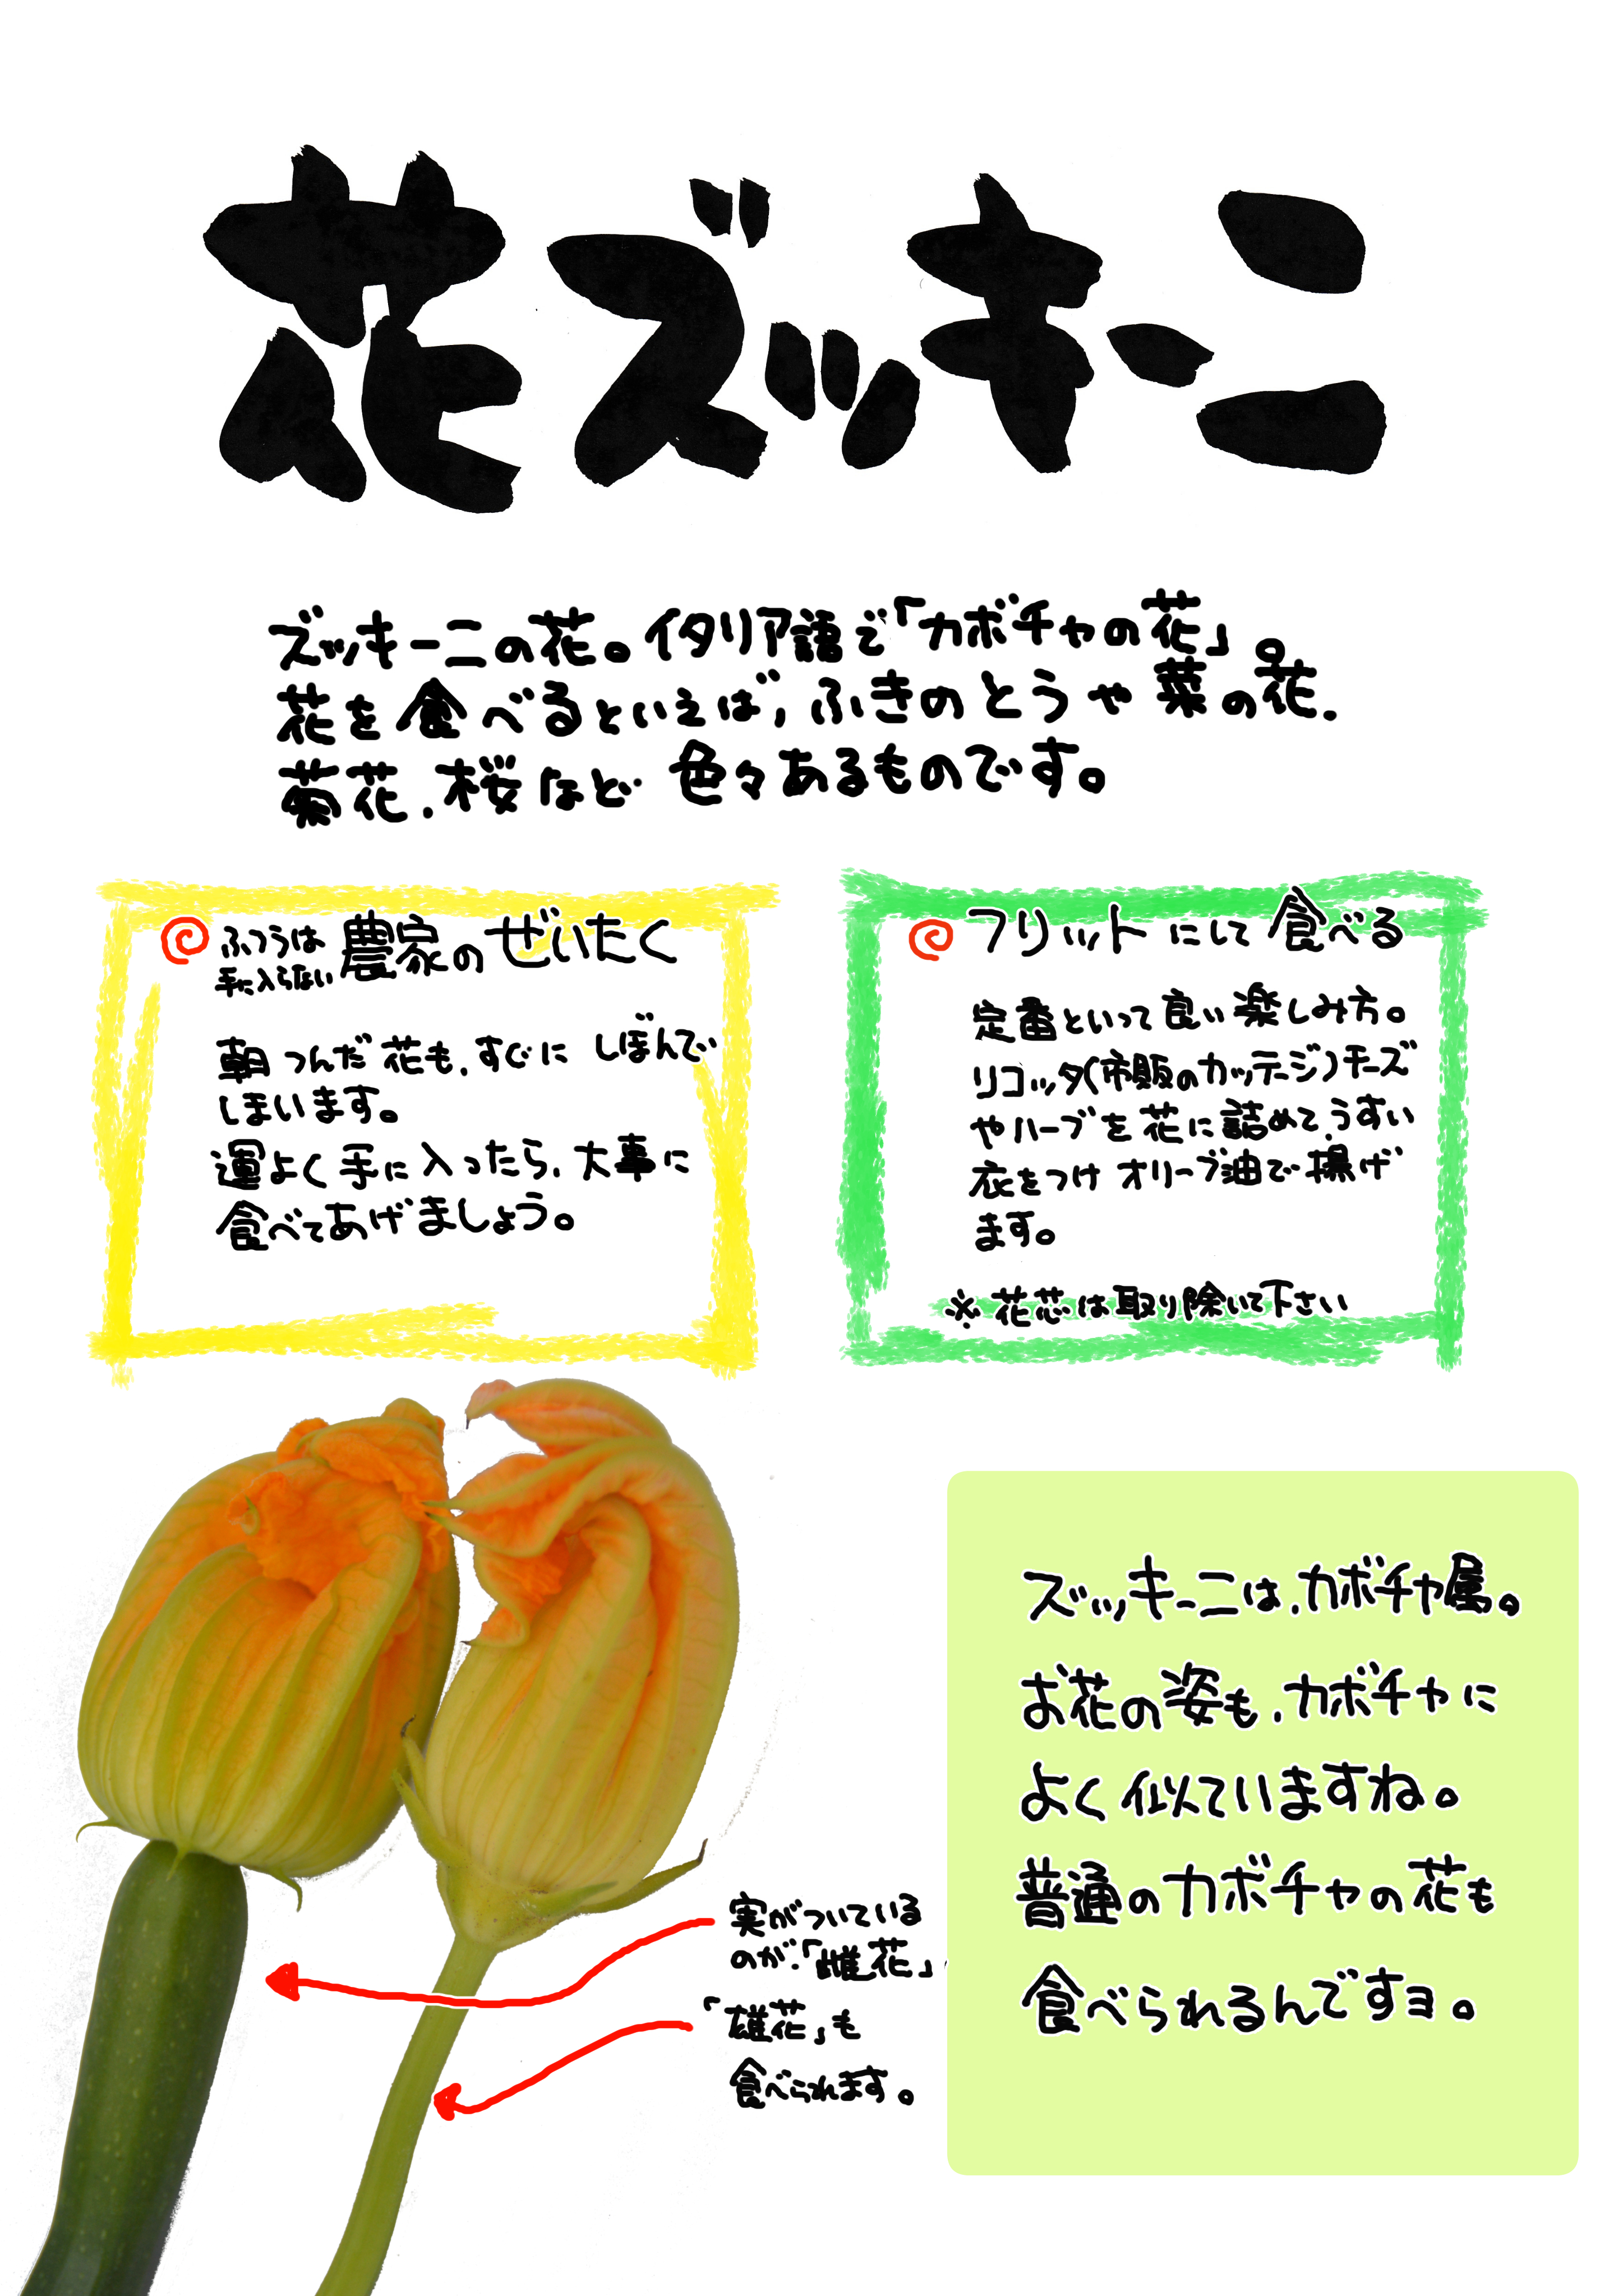 花ズッキーニ
ズッキーニの花。イタリア語で「カボチャの花」。
花を食べるといえば、ふきのとうや菜の花、
菊花、桜など色々あるものです。
ふつうは
手に入らない
農家のぜいたく
朝つんだ花も、すぐにしぼんで
しまいます。
運よく手に入ったら、大事に
食べてあげましょう。
フリットにして食べる
定番といって良い楽しみ方。
リコッタ(市販のカッテージ)チーズ
やハーブを花に詰めて、うすい
衣をつけオリーブ油で揚げ
ます。
※花芯は取り除いて下さい
実がついている
のが、「雌花」。
「雄花」も
食べられます。
ズッキーニは、カボチャ属。
お花の姿も、カボチャに
よく似ていますね。
普通のカボチャの花も
食べられるんですヨ。